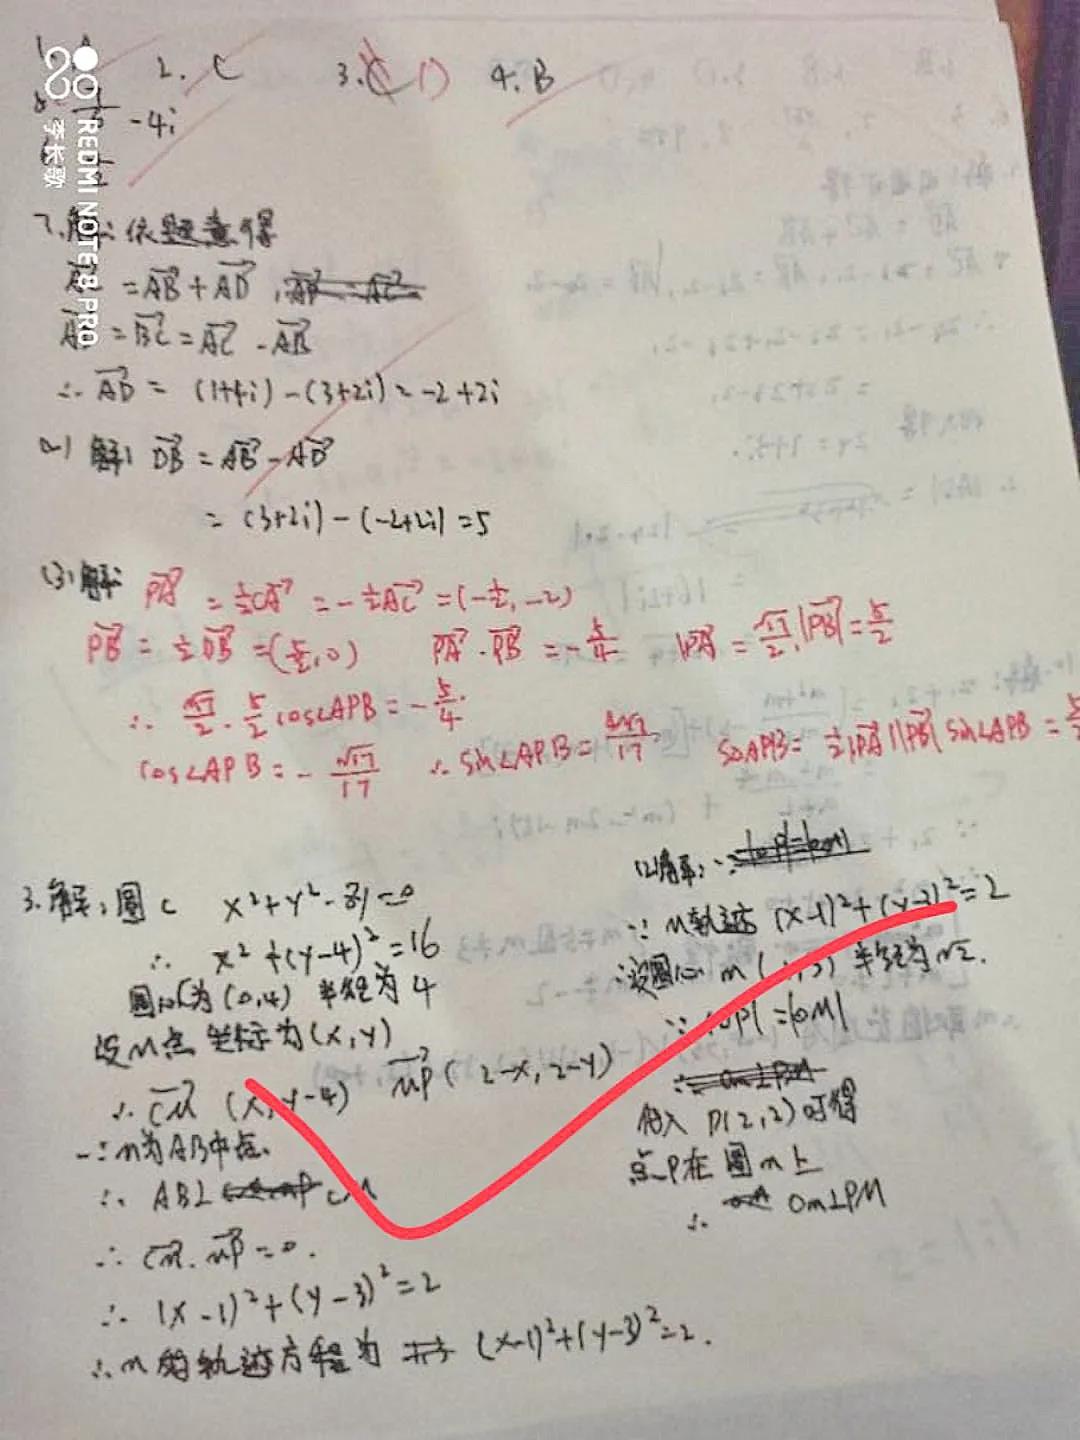 1. A 2. C 3. C D 4. B
-4i
7. 解: 依题意得
AC = AB + AD,
AD = BC = AC - AB
∴ AD = (1+4i) - (3+2i) = -2+2i
(2) 解: DB = AB - AD
= (3+2i) - (-2+2i) = 5
(3) 解: PA = ½CA = -½AC = (-½, -2)
PB = ½DB = (5/2, 0) PA · PB = -5/4 |PA| = √17/2, |PB| = 5/2
∴ √17/2 · 5/2 cos∠APB = -5/4
cos∠APB = -√17/17 ∴ sin∠APB = 4√17/17 S△APB = ½|PA||PB| sin∠APB =
3. 解: 圆C x²+y²-8y=0
∴ x²+(y-4)²=16
圆心为(0,4) 半径为4
设M点坐标为(x,y)
∴ CM (x, y-4) MP (2-x, 2-y)
∵ M为AB中点
∴ AB⊥CM
∴ CM·MP=0.
∴ (x-1)²+(y-3)²=2
∴ M的轨迹方程为 (x-1)²+(y-3)²=2.
(2) 解:
∵ M轨迹 (x-1)²+(y-3)²=2
设圆心 m (1,3) 半径为√2.
∵ |OP|=|OM|
代入 P(2,2) 可得
点P在圆m上
∴ Om⊥PM
REDMI NOTE 8 PRO
李长歌